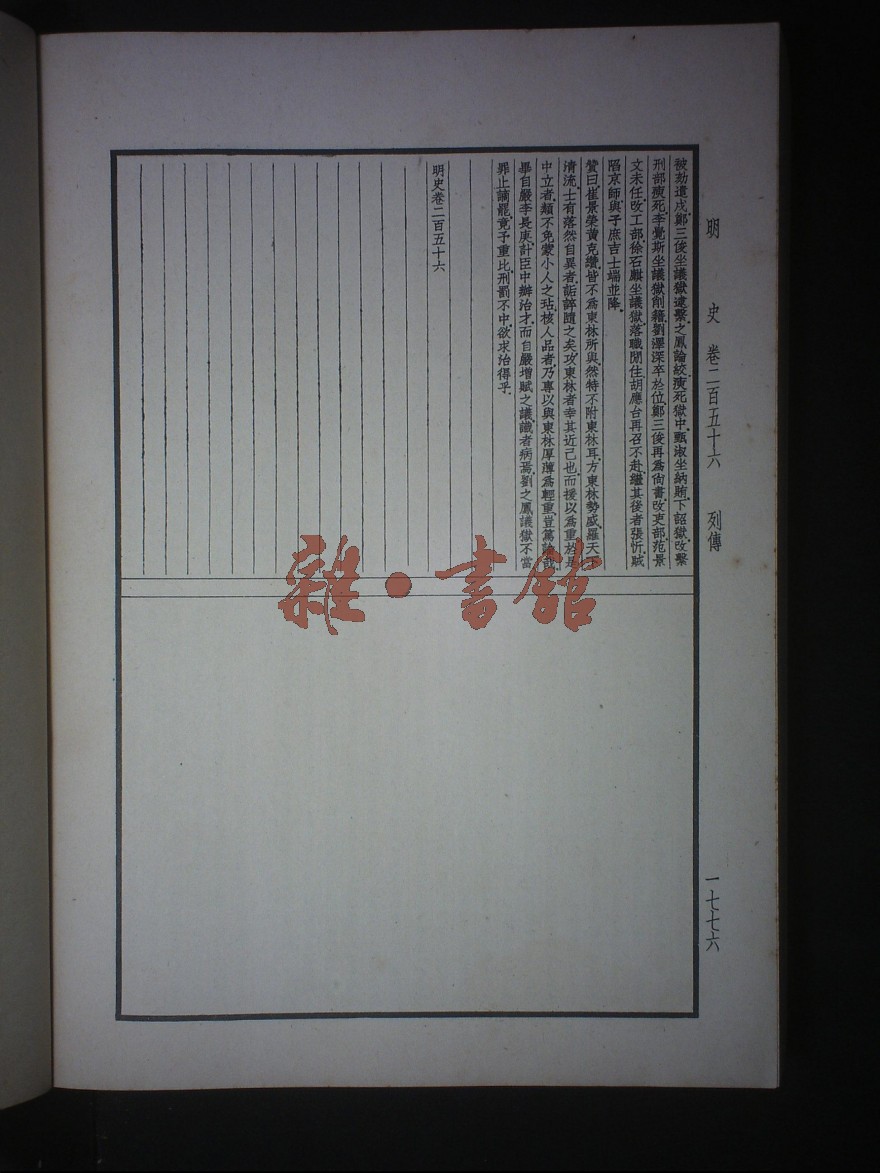 明　史　卷二百五十六　列傳
被劾遣戍鄭三俊坐議獄逮繫之鳳論絞瘐死獄中甄淑坐納賄下詔獄改繫
刑部瘐死李覺斯坐議獄削籍劉澤深卒於位鄭三俊再爲尙書改吏部范景
文未任改工部徐石麒坐議獄落職閒住胡應台再召不赴繼其後者張忻賊
陷京師與子庶吉士端並降
贊曰崔景榮黃克纘皆不爲東林所與然特不附東林耳方東林勢盛羅天
淸流士有落然自異者詬誶隨之矣攻東林者幸其近己也而援以爲重於是
中立者類不免蒙小人之玷核人品者乃專以與東林厚薄爲輕重豈篤論哉
畢自嚴李長庚計臣中辦治才而自嚴增賦之議識者病焉劉之鳳議獄不當
罪止謫罷竟予重比刑罰不中欲求治得乎
明史卷二百五十六
一七七六
雜·書館